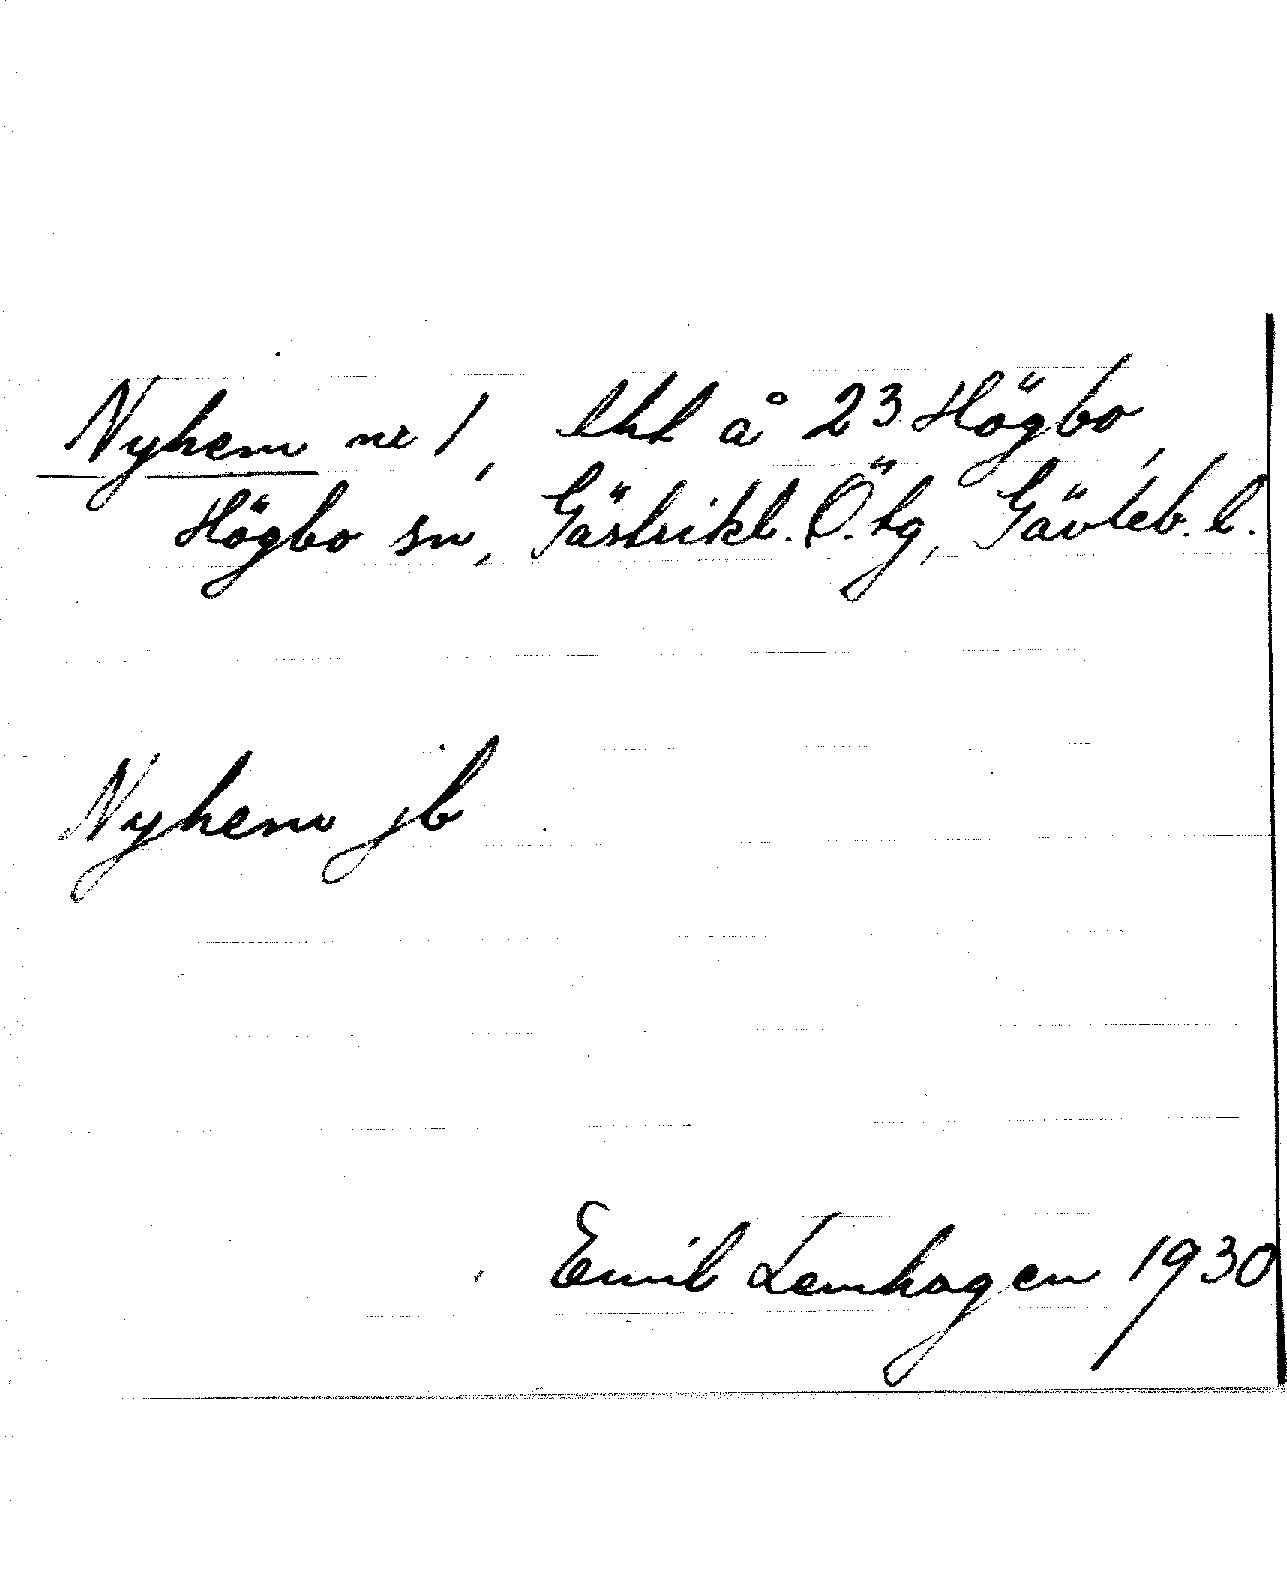 Nyhem nr 1, lht å 23 Högbo,
Högbo sn, Gästrikl. Ö. tg, Gävleb. l.
Nyhem jb
Emil Lemhagen 1930